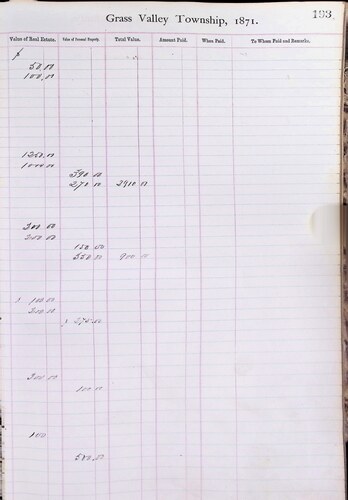 Grass Valley Township, 1871. 193
Value of Real Estate. Value of Personal Property. Total Value. Amount Paid. When Paid. To Whom Paid and Remarks.
$
50.00
100.00
1250.00
1000.00
390 00
270 00 2910 00
300 00
200 00
150 00
250 00 900 00
$ 100 00
200 00
$ 275.00
300 00
100 00
100
580.00